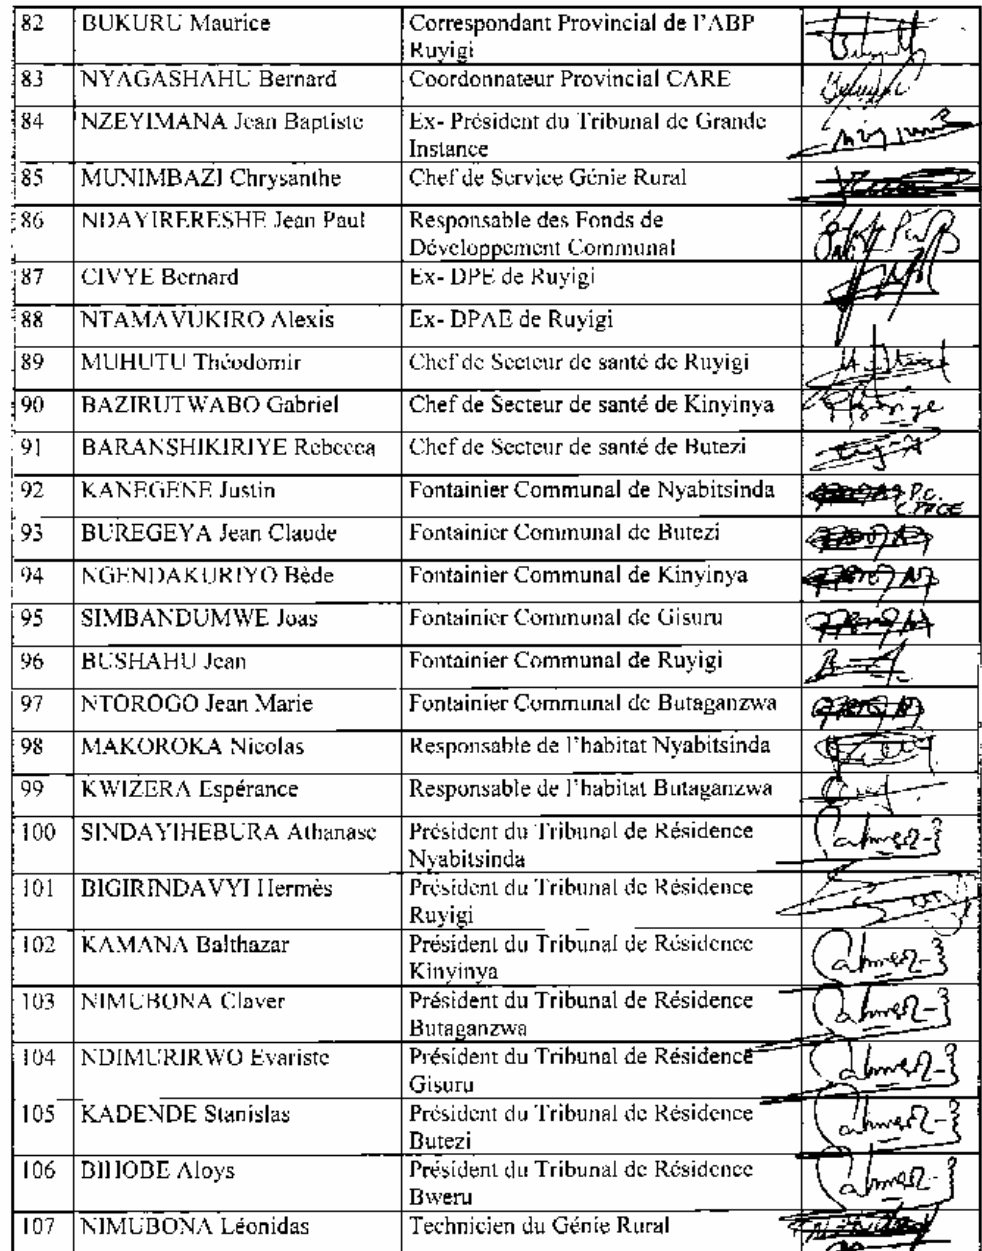 82 BUKURU Maurice Correspondant Provincial de l'ABP
Ruyigi
83 NYAGASHAHU Bernard Coordonnateur Provincial CARE
84 NZEYIMANA Jean Baptiste Ex- Président du Tribunal de Grande
Instance
85 MUNIMBAZI Chrysanthe Chef de Service Génie Rural
86 NDAYIRERESHE Jean Paul Responsable des Fonds de
Développement Communal
87 CIVYE Bernard Ex- DPE de Ruyigi
88 NTAMAVUKIRO Alexis Ex- DPAE de Ruyigi
89 MUHUTU Théodomir Chef de Secteur de santé de Ruyigi
90 BAZIRUTWABO Gabriel Chef de Secteur de santé de Kinyinya
91 BARANSHIKIRIYE Rebecca Chef de Secteur de santé de Butezi
92 KANEGENE Justin Fontainier Communal de Nyabitsinda P.C.
93 BUREGEYA Jean Claude Fontainier Communal de Butezi
94 NGENDAKURIYO Bède Fontainier Communal de Kinyinya
95 SIMBANDUMWE Joas Fontainier Communal de Gisuru
96 BUSHAHU Jean Fontainier Communal de Ruyigi
97 NTOROGO Jean Marie Fontainier Communal de Butaganzwa
98 MAKOROKA Nicolas Responsable de l'habitat Nyabitsinda
99 KWIZERA Espérance Responsable de l'habitat Butaganzwa
100 SINDAYIHEBURA Athanase Président du Tribunal de Résidence
Nyabitsinda
101 BIGIRINDAVYI Hermès Président du Tribunal de Résidence
Ruyigi
102 KAMANA Balthazar Président du Tribunal de Résidence
Kinyinya
103 NIMUBONA Claver Président du Tribunal de Résidence
Butaganzwa
104 NDIMURIRWO Evariste Président du Tribunal de Résidence
Gisuru
105 KADENDE Stanislas Président du Tribunal de Résidence
Butezi
106 BIHOBE Aloys Président du Tribunal de Résidence
Bweru
107 NIMUBONA Léonidas Technicien du Génie Rural